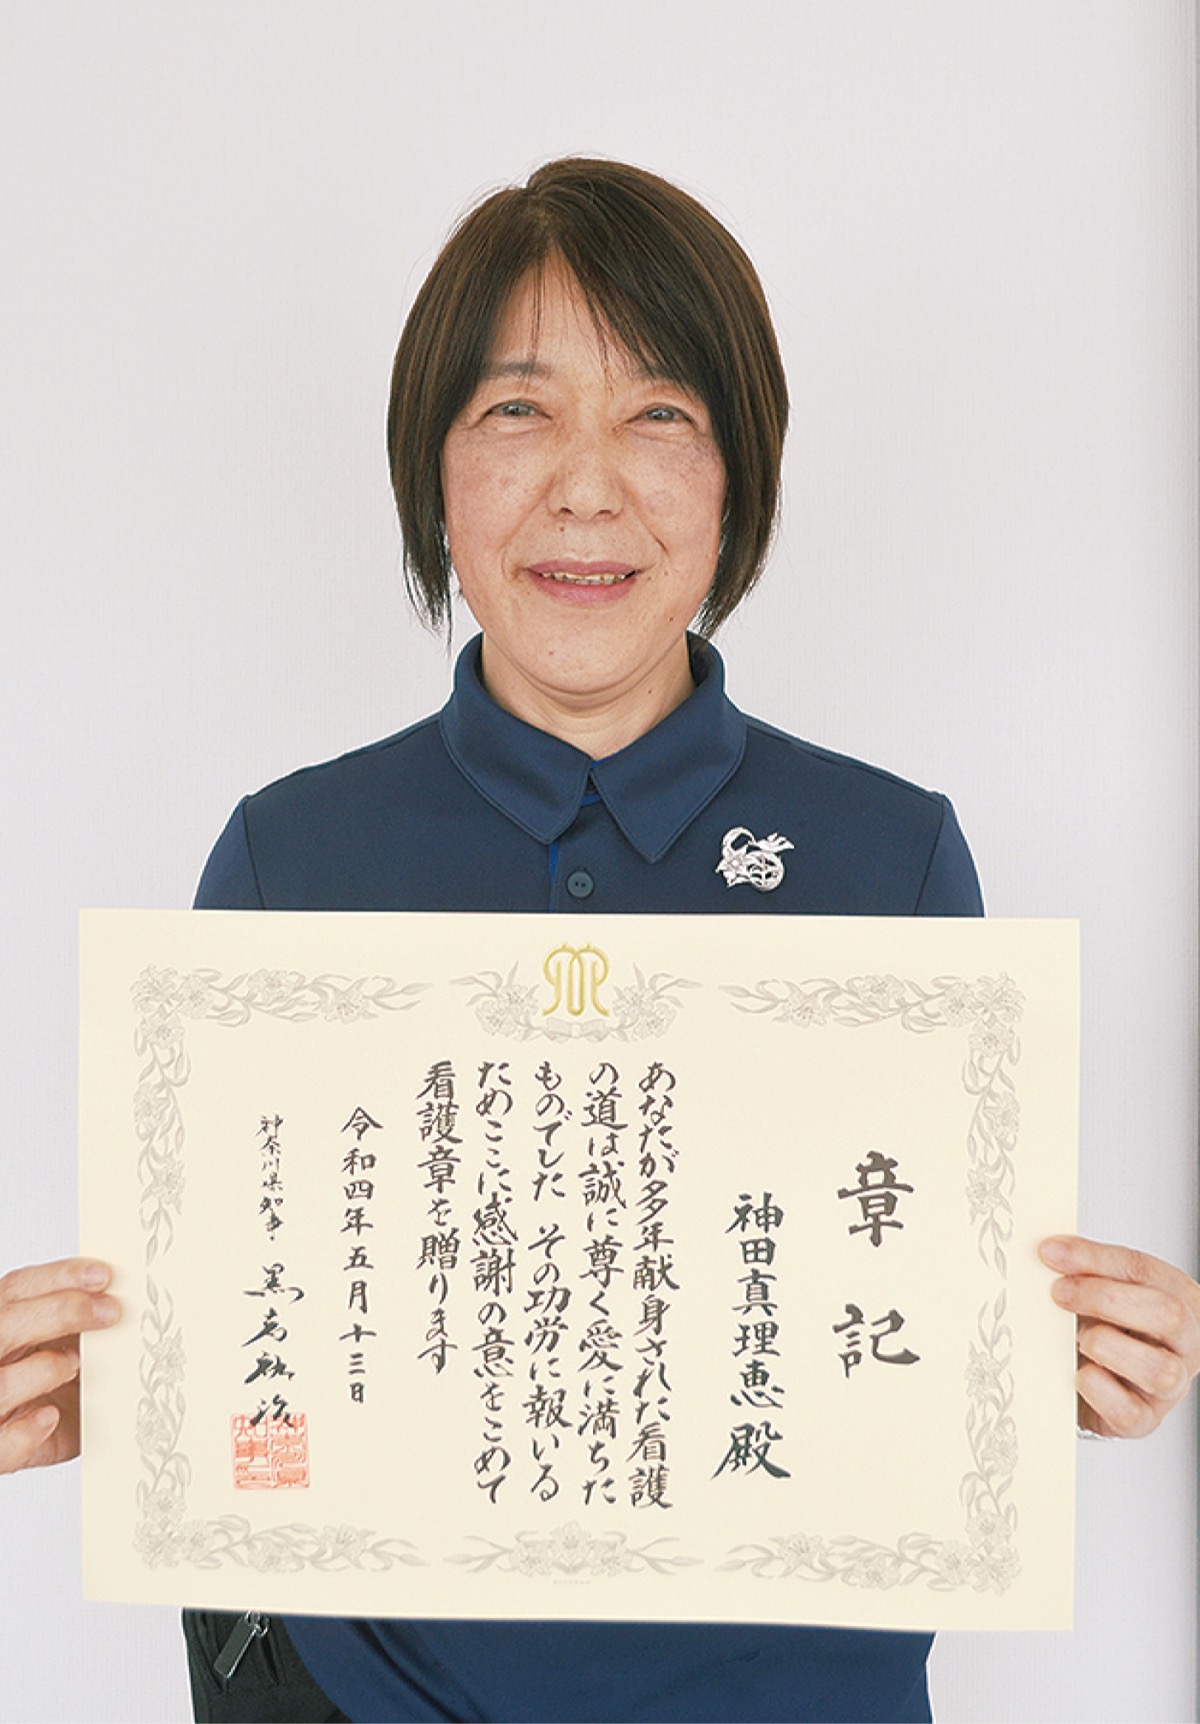 章記
神田真理恵殿
あなたが多年献身された看護
の道は誠に尊く愛に満ちた
ものでした その功労に報いる
ためここに感謝の意をこめて
看護章を贈ります
令和四年五月十三日
神奈川県知事 黒岩祐治